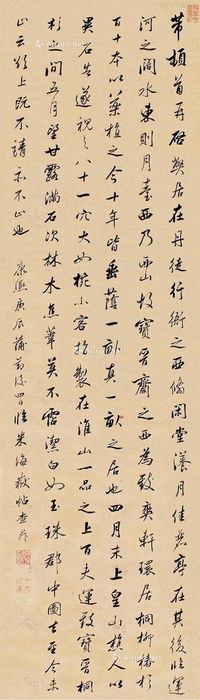 芾頓首再啓弊居在丹徒行衙之西翛閑堂漾月佳麗亭在其後臨運
河之闊水東則月臺西乃西山故寶晉齋之西為致爽軒環居桐柳椿杉
百十本以藥植之今十年皆垂蔭一畝真一畝之居也四月末上皇山樵人以
異石告遂視之八十一穴大如椀小容指製在淮山一品之上百夫運致寶晉桐
杉之間五月望甘露滿石次林木蕉葦莫不霑潔白如玉珠郡中圖去至今未
止云欲上既不請亦不止也 康熙庚辰蒲節後四日臨米海嶽帖查昇